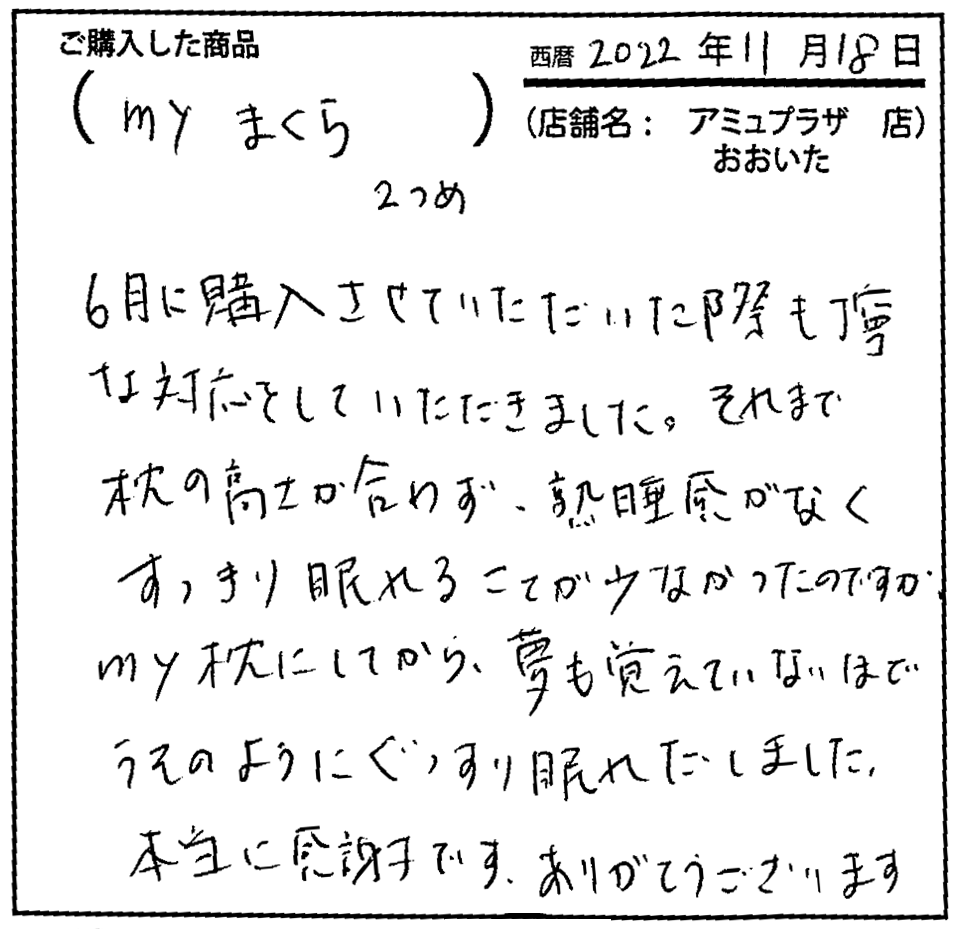 ご購入した商品
西暦 2022 年 11 月 18 日
( my まくら )
(店舗名： アミュプラザ 店)
おおいた
2つめ
6月に購入させていただいた際も丁寧
な対応をしていただきました。それまで
枕の高さが合わず、熟睡感がなく
すっきり眠れることが少なかったのですが、
my枕にしてから、夢も覚えていないほどで
うそのようにぐっすり眠れだしました。
本当に感謝です、ありがとうございます